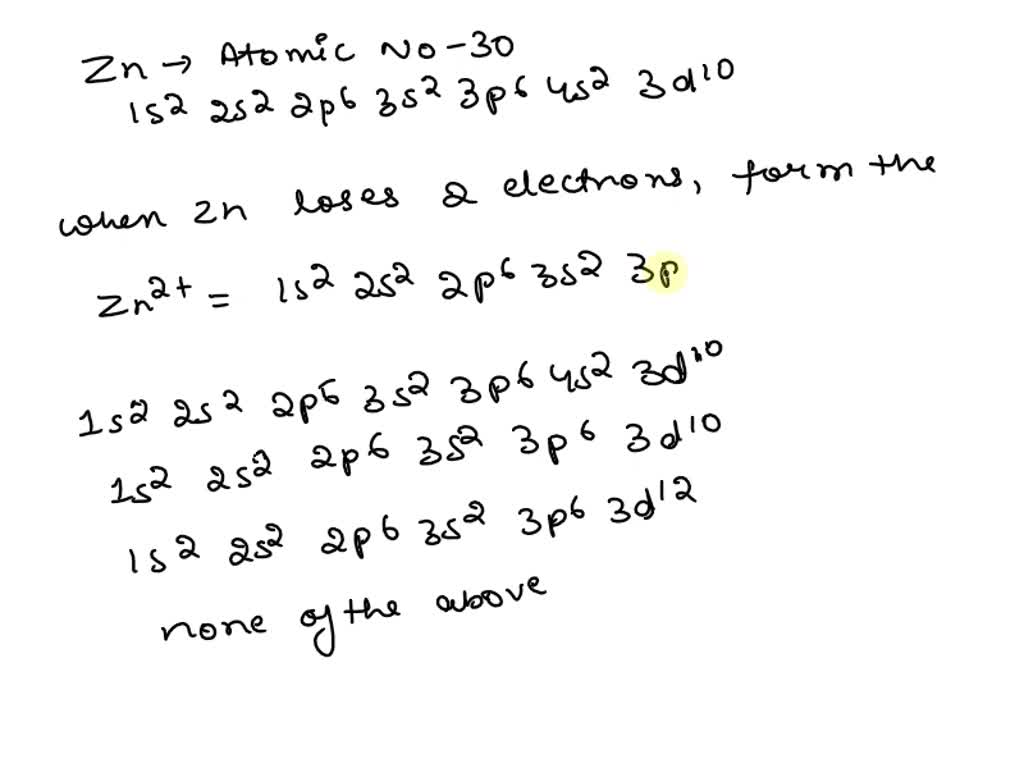 Zn → Atomic No - 30
1s2 2s2 2p6 3s2 3p6 4s2 3d10
when Zn loses 2 electrons, form the
Zn2+ = 1s2 2s2 2p6 3s2 3p
1s2 2s2 2p6 3s2 3p6 4s2 3d10
1s2 2s2 2p6 3s2 3p6 3d10
1s2 2s2 2p6 3s2 3p6 3d12
none of the above